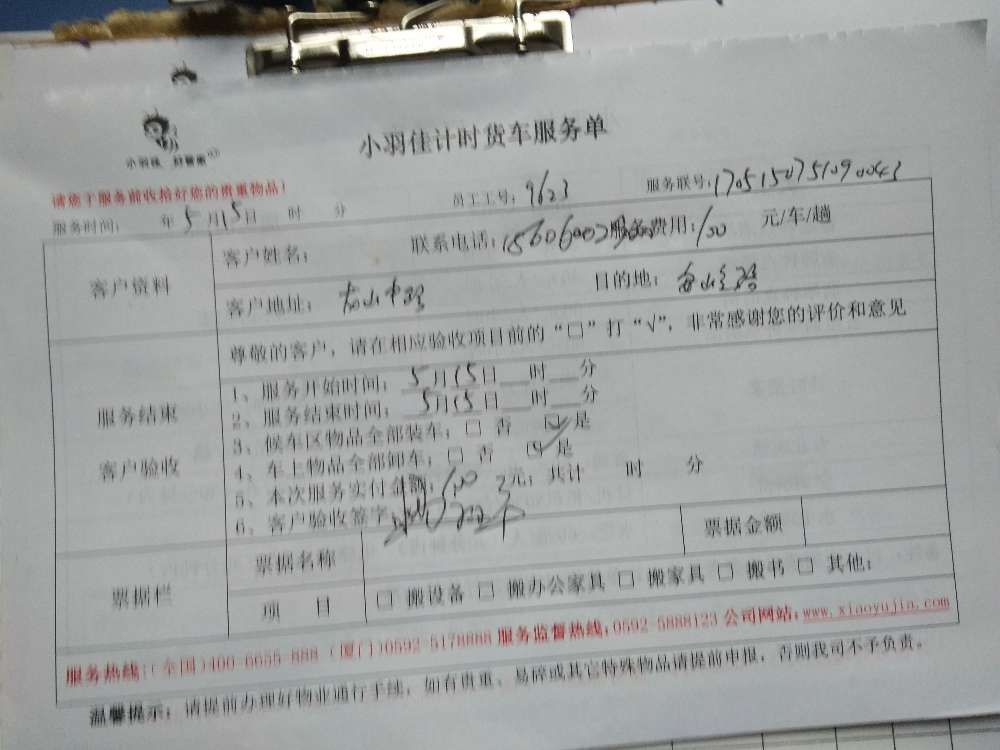 小羽佳计时货车服务单
小羽佳 好管家
请您于服务前收拾好您的贵重物品!
服务时间: 年 5 月 15 日 时 分 员工工号: 9623 服务联号: 170515075109 0043
客户资料
客户姓名: 联系电话: 服务费用: 100 元/车/趟
客户地址: 目的地:
服务结束
客户验收
尊敬的客户,请在相应验收项目前的“□”打“√”,非常感谢您的评价和意见
1、服务开始时间: 5月15日__时__分
2、服务结束时间: 5月15日__时__分
3、候车区物品全部装车: □ 否 ☑ 是
4、车上物品全部卸车: □ 否 ☑ 是
5、本次服务实付金额: 100 元; 共计 时 分
6、客户验收签字:
票据栏
票据名称 票据金额
项 目 □ 搬设备 □ 搬办公家具 □ 搬家具 □ 搬书 □ 其他:
服务热线:(全国)400-6655-888 (厦门)0592-5178888 服务监督热线:0592-5888123 公司网站:www.xiaoyujia.com
温馨提示:请提前办理好物业通行手续,如有贵重、易碎或其它特殊物品请提前申报,否则我司不予负责。